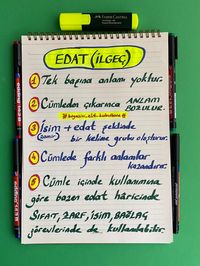 FABER-CASTELL
EDAT (İLGEÇ)
1 Tek başına anlamı yoktur.
2 Cümleden çıkarınca ANLAM
BOZULUR.
3 İsim + edat şeklinde
(zamir)
bir kelime grubu oluşturur.
4 Cümlede farklı anlamlar
kazandırır.
5 Cümle içinde kullanımına
göre bazen edat hâricinde
SIFAT, ZARF, İSİM, BAĞLAÇ
görevlerinde de kullanılabilir.